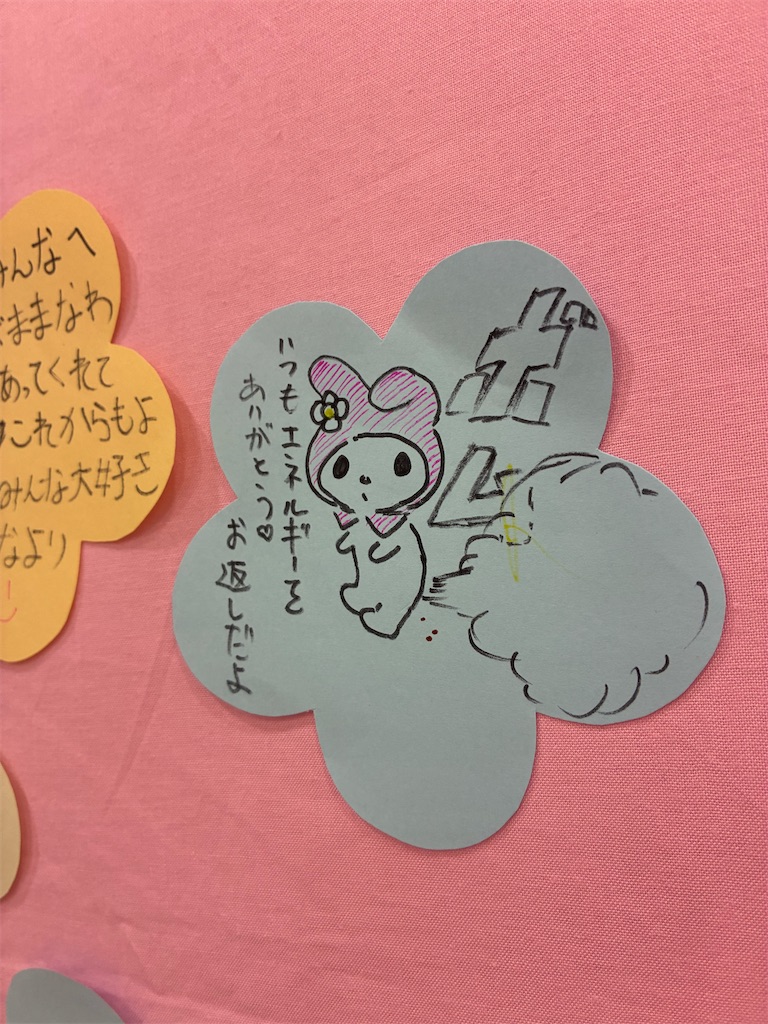 みんなへ
ままなわ
あってくれて
これからもよ
みんな大好き
なより
いつもエネルギーを
ありがとう♡
お返しだよ